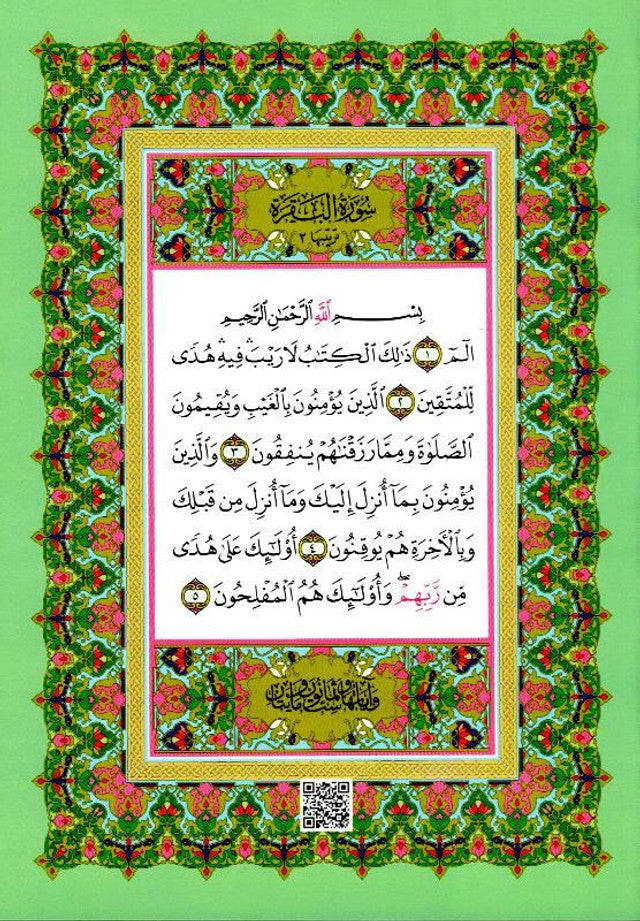 سُورَةُ الْبَقَرَةِ
تَرْتِيبُهَا ٢
بِسْمِ اللَّهِ الرَّحْمَٰنِ الرَّحِيمِ
الٓمٓ ١ ذَٰلِكَ الْكِتَابُ لَا رَيْبَ ۛ فِيهِ ۛ هُدًى
لِّلْمُتَّقِينَ ٢ الَّذِينَ يُؤْمِنُونَ بِالْغَيْبِ وَيُقِيمُونَ
الصَّلَوٰةَ وَمِمَّا رَزَقْنَاهُمْ يُنفِقُونَ ٣ وَالَّذِينَ
يُؤْمِنُونَ بِمَا أُنزِلَ إِلَيْكَ وَمَا أُنزِلَ مِن قَبْلِكَ
وَبِالْآخِرَةِ هُمْ يُوقِنُونَ ٤ أُولَٰئِكَ عَلَىٰ هُدًى
مِّن رَّبِّهِمْ ۖ وَأُولَٰئِكَ هُمُ الْمُفْلِحُونَ ٥
وآياتها ستّ وثمانون ومايتان